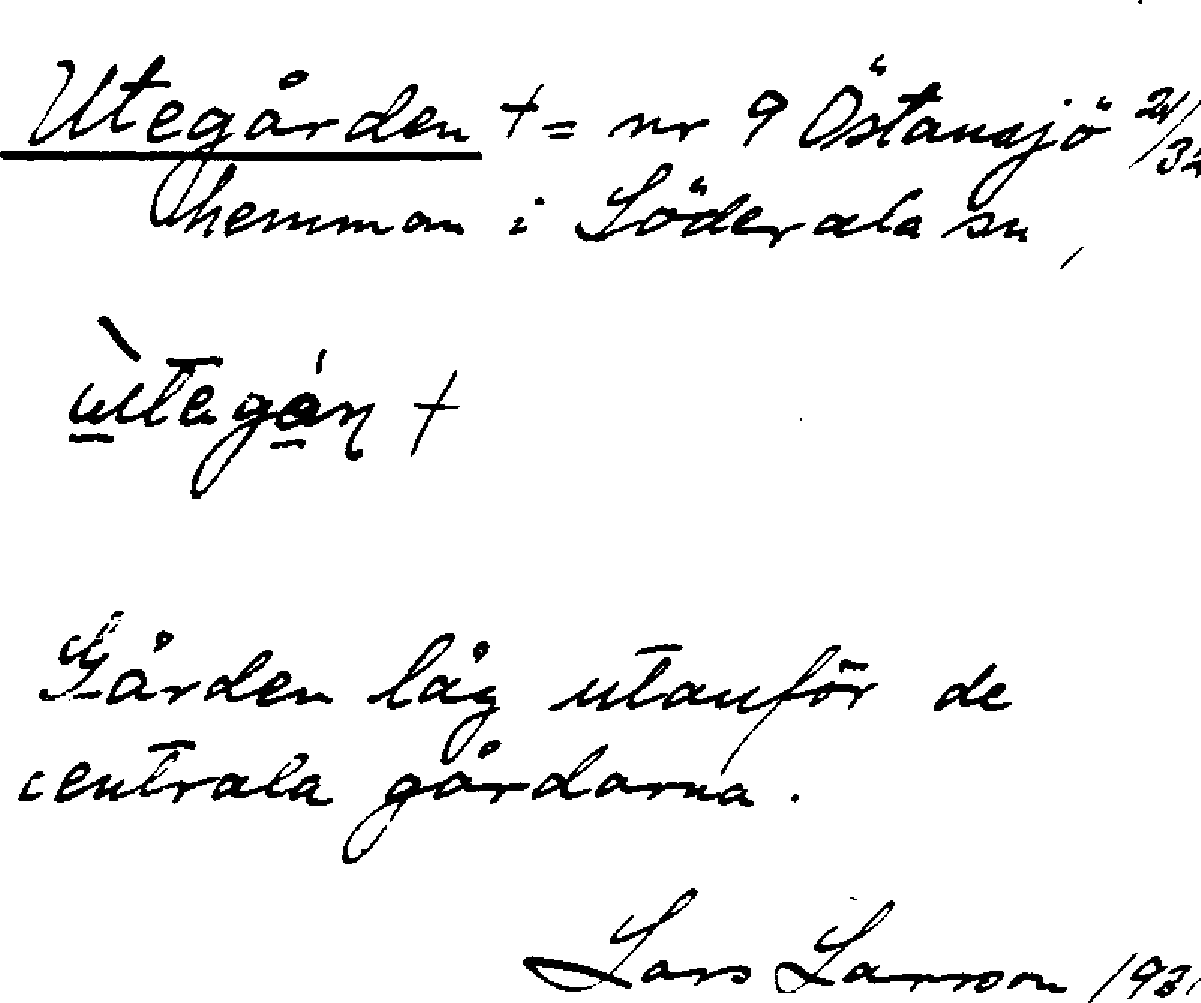 Utegården + = nr 9 Östansjö 21/32
hemman i Söderala sn,
ùtegán +
Gården låg utanför de
centrala gårdarna.
Lars Larsson